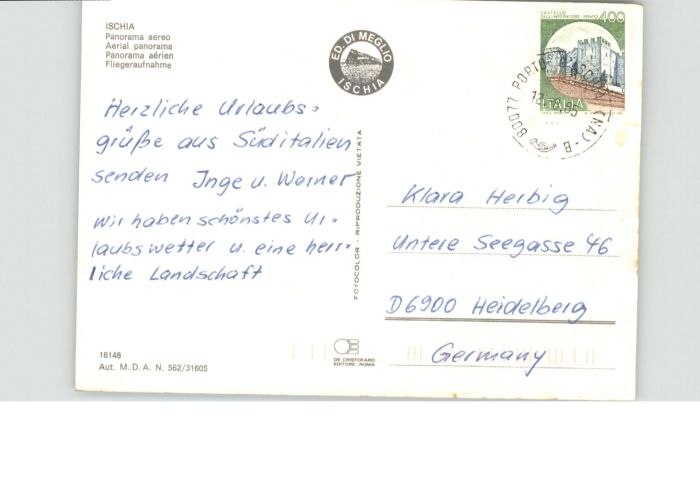 ISCHIA
Panorama aereo
Aerial panorama
Panorama aérien
Fliegeraufnahme
ED. DI MEGLIO
ISCHIA
CASTELLO
DELL'IMPERATORE - PRATO
400
ITALIA
80077 PORTO
(NA) - B
Herzliche Urlaubs=
grüße aus Süditalien
senden Inge u. Werner
wir haben schönstes Ur=
laubswetter u. eine herr=
liche Landschaft
FOTOCOLOR - RIPRODUZIONE VIETATA
Klara Herbig
Untere Seegasse 46
D6900 Heidelberg
Germany
16146
Aut. M. D. A. N. 562/31605
DE CRISTOFARO
EDITORE - ROMA